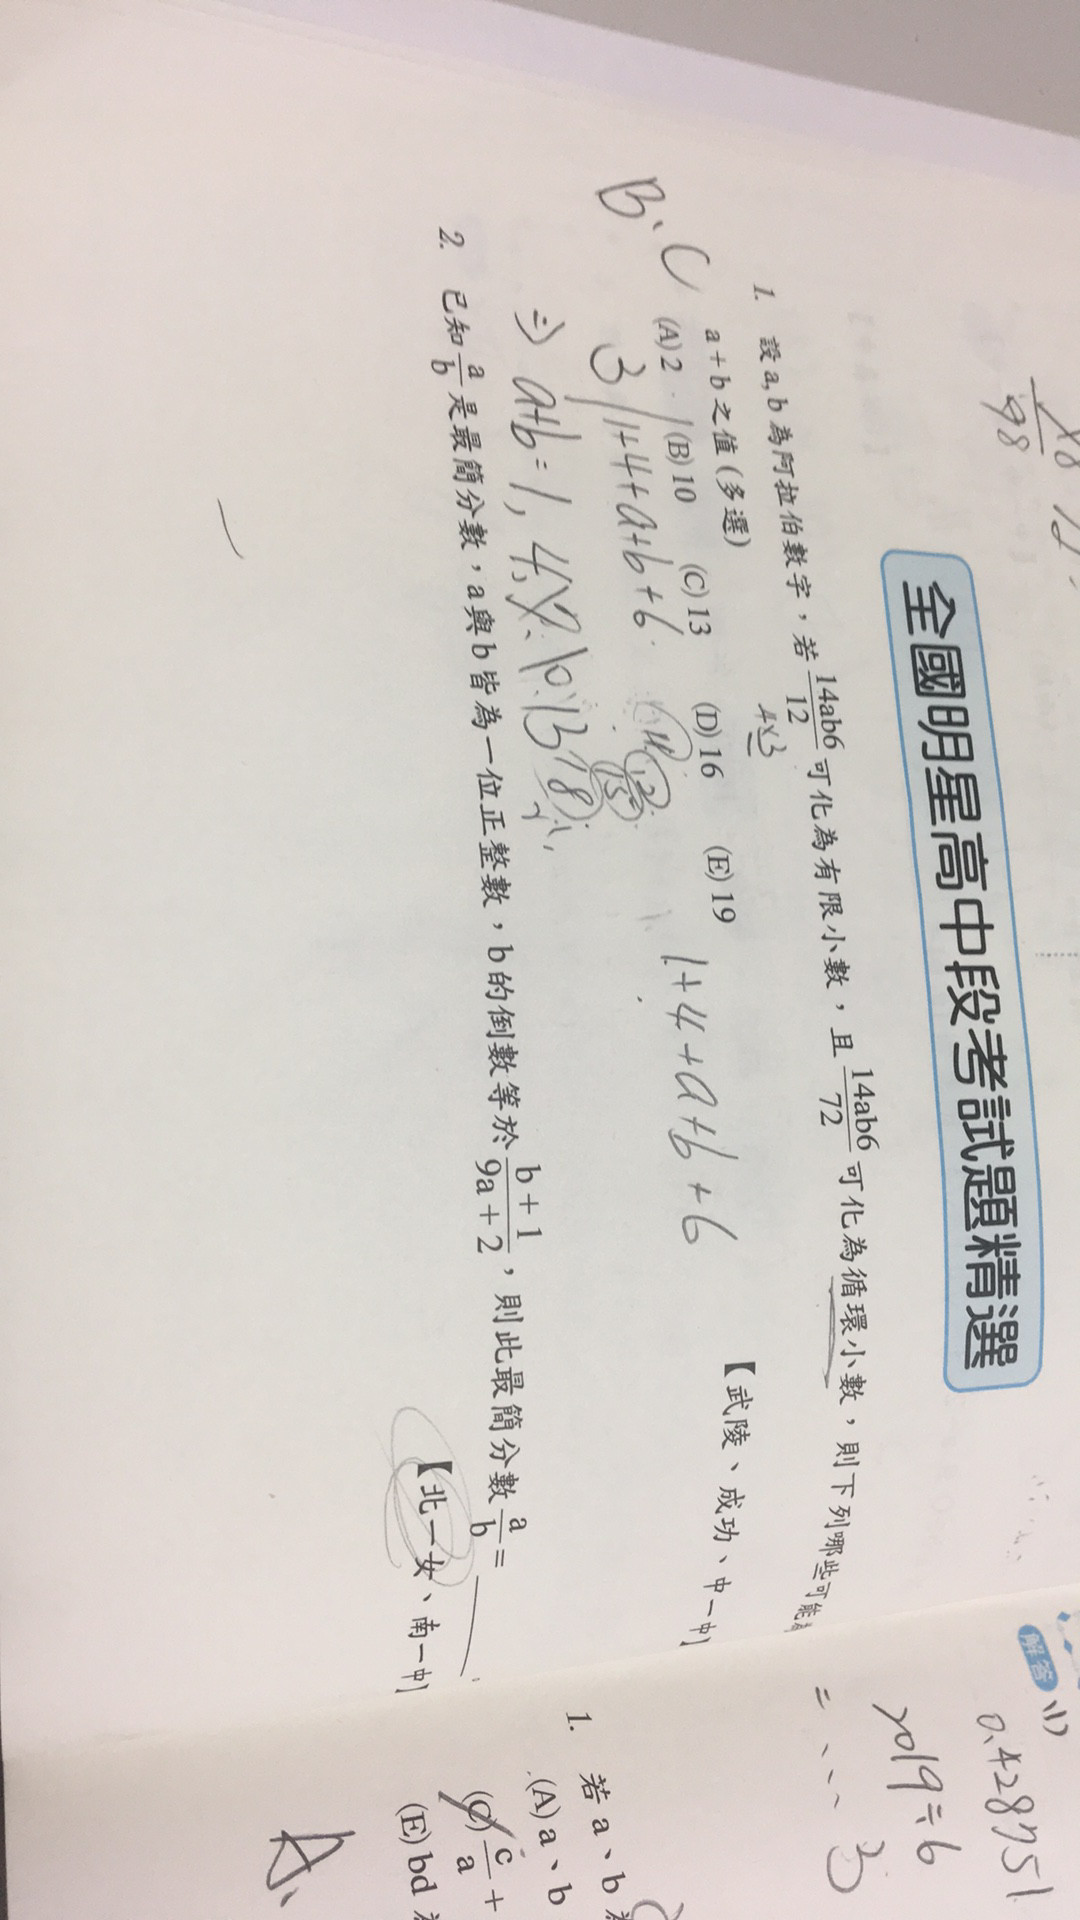 全國明星高中段考試題精選
1. 設a,b為阿拉伯數字，若14ab6/12可化為有限小數，且14ab6/72可化為循環小數，則下列哪些可能為
4×3
a+b之值(多選)
【武陵、成功、中一中】
(A)2 (B)10 (C)13 (D)16 (E)19
B、C
3|1+4+a+b+6
1+4+a+b+6
12
15
⇒ a+b=1,4,7,10,13
2. 已知a/b是最簡分數，a與b皆為一位正整數，b的倒數等於b+1/9a+2，則此最簡分數a/b=
【北一女、南一中】
98
解答
(1)
0.428751
2019÷6
=、、、3
1. 若a、b
(A)a、b
(C)c/a+
(E)bd
A、